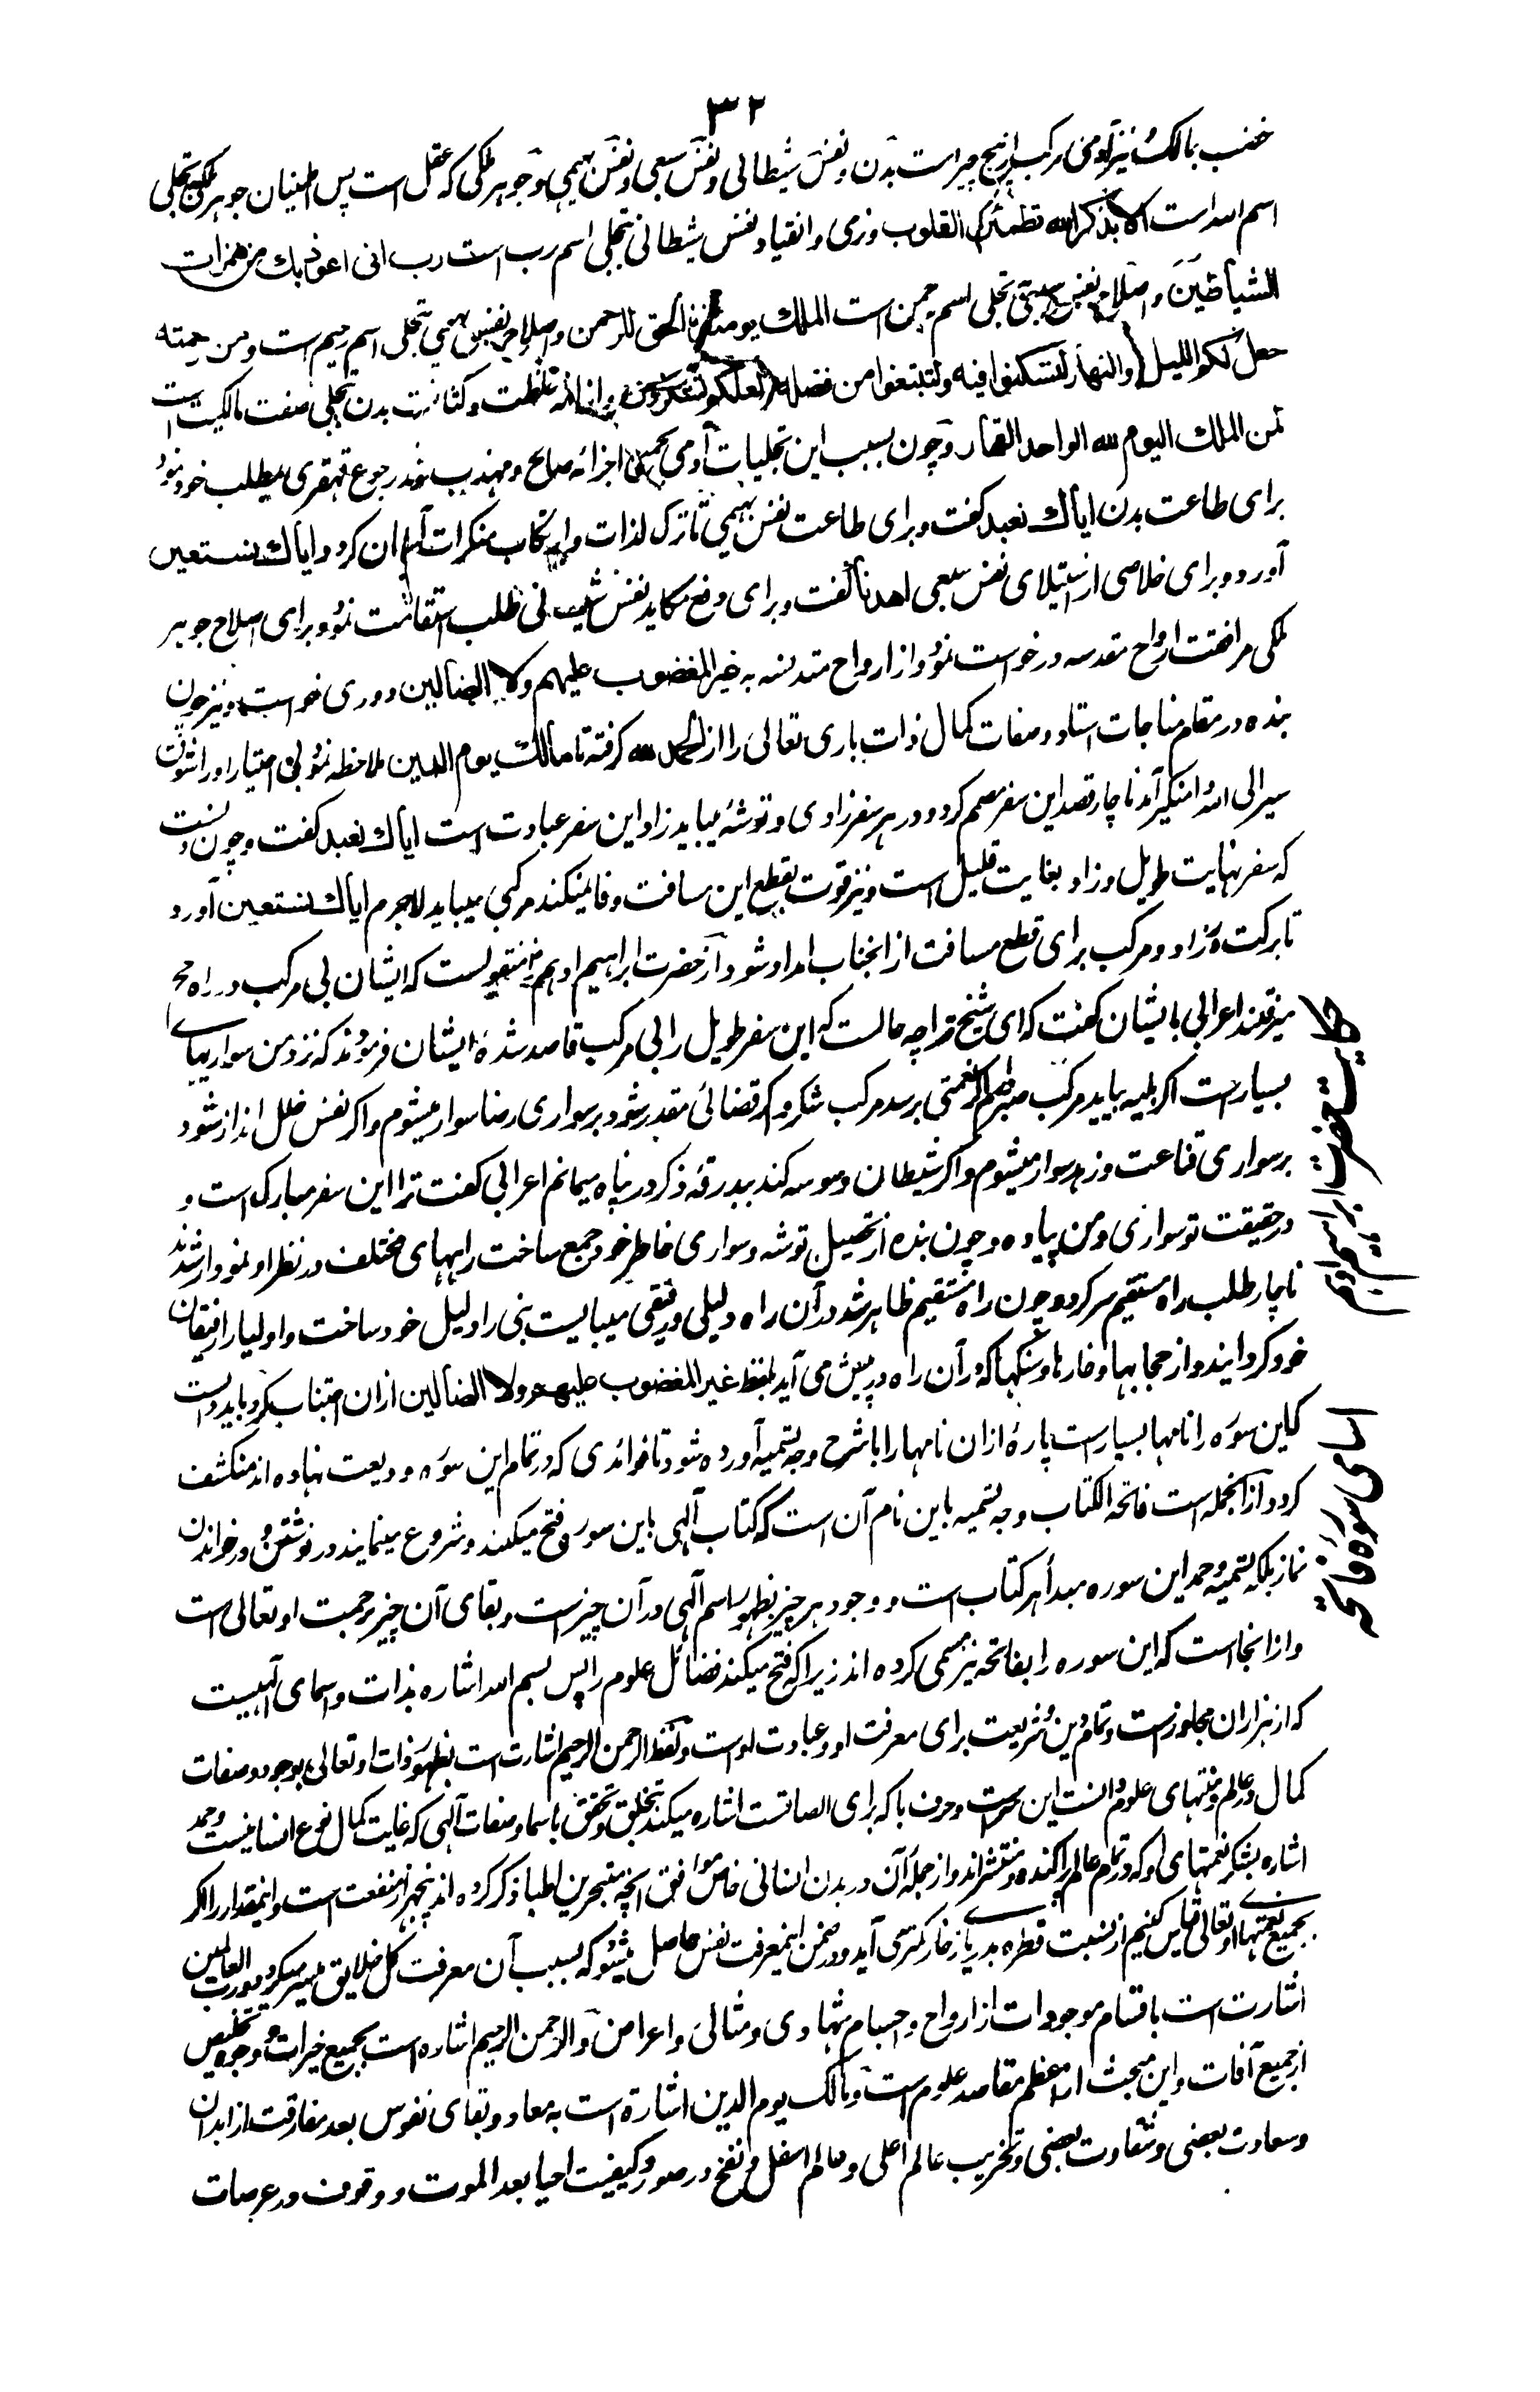 ۳۲
غضب بمالک و نیز آدمی مرکب از پنج چیز است بدن و نفس شیطانی و نفس سبعی و نفس بهیمی و جوهر ملکی که عقل است پس اطمینان جوهر ملکی بتجلی
اسم الله است الا بذکر الله تطمئن القلوب و نرمی و انقیاد نفس شیطانی بتجلی اسم رب است رب انی اعوذ بك من همزات
الشیاطین و اصلاح نفس سبعی بتجلی اسم رحمن است الملك یومئذ الحق للرحمن و اصلاح نفس بهیمی بتجلی اسم رحیم است و من رحمته
جعل لکم اللیل والنهار لتسکنوا فیه ولتبتغوا من فضله ولعلکم تشکرون و ازاله غلظت و کثافت بدن بتجلی صفت مالکیت است
لمن الملك الیوم لله الواحد القهار و چون بسبب این تجلیات آدمی بجمیع اجزائه صالح و مهذب شد رجوع قهقری بمطلب خود نمود
برای طاعت بدن ایاك نعبد گفت و برای طاعت نفس بهیمی تا ترک لذات و ارتکاب منکرات آسان گردد ایاك نستعین
آورد و برای خلاصی از استیلای نفس سبعی اهدنا گفت و برای دفع مکاید نفس شیطانی طلب استقامت نمود و برای اصلاح جوهر
ملکی مرافقت ارواح مقدسه درخواست نمود و از ارواح متدنسه به غیر المغضوب علیهم ولا الضالین دوری خواست و نیز چون
بنده در مقام مناجات استاد و صفات کمال ذات باری تعالی را از الحمد لله گرفته تا مالك یوم الدین ملاحظه نمود بی اختیار او را شوق
سیر الی الله دامنگیر آمد ناچار قصد این سفر مصمم کرد و در هر سفر زادی و توشهٔ میباید زاد این سفر عبادت است ایاك نعبد گفت و چون دانست
که سفر نهایت طویل و زاد بغایت قلیل است و نیز قوت بقطع این مسافت وفا نمیکند مرکبی میباید لاجرم ایاك نستعین آورد
تا برکت زاد و مرکب برای قطع مسافت از انجناب امداد شود از حضرت ابراهیم ادهم منقولست که ایشان بی مرکب در راه حج
میرفتند اعرابی بایشان گفت که ای شیخ ترا چه حالست که این سفر طویل را بی مرکب قاصد شدهٔ ایشان فرمودند که نزد من سواریهای
بسیار است اگر بلیه بیاید مرکب صبر و اگر نعمتی برسد مرکب شکر و اگر قضائی مقدر شود بر سواری رضا سوار میشوم و اگر نفس خلل انداز شود
بر سواری قناعت و زهد سوار میشوم و اگر شیطان وسوسه کند ببدرقهٔ ذکر در پناه میمانم اعرابی گفت ترا این سفر مبارک است و
در حقیقت تو سواری و من پیاده و چون بنده از تحصیل توشه و سواری خاطر خود جمع ساخت راههای مختلف در نظر او نمودار شدند
ناچار طلب راه مستقیم سر کرد و چون راه مستقیم ظاهر شد در آن راه دلیلی و رفیقی میبایست نبی را دلیل خود ساخت و اولیا را رفیقان
خود گردانید و از حجابها و خارها و سنگها که در آن راه در پیش می آید بلفظ غیر المغضوب علیهم ولا الضالین ازان اجتناب کرد و باید دانست
که این سوره را نامها بسیارست پارهٔ ازان نامها را با شرح وجه تسمیه آورده شود تا فوائدی که در تمام این سوره ودیعت نهاده اند منکشف
گردد ازانجمله است فاتحة الکتاب وجه تسمیه باین نام آن است که کتاب آلهی باین سوره فتح میکنند و شروع مینمایند در نوشتن و در خواندن
نماز بلکه تسمیه و حمد این سوره مبدأ هر کتاب است و وجود هر چیز بظهور اسم آلهی در آن چیز است و بقای آن چیز برحمت او تعالی است
و از انجا است که این سوره را بفاتحه نیز مسمی کرده اند زیرا که فتح میکند فضائل علوم را پس بسم الله اشاره بذات و اسمای آلهیست
که از هزاران متجاوزست و تمام دین و شریعت برای معرفت او و عبادت اوست و لفظ الرحمن الرحیم اشارت است بظهور ذات او تعالی بوجود و صفات
کمال در عالم و منتهای علوم دانستن این سر است و حرف با که برای الصاقست اشاره میکند بتخلق و تحقق باسما و صفات آلهی که غایت کمال نوع انسانیست و حمد
اشاره بشکر نعمتهای او که در تمام عالم پراگنده و منتشر اند و از جمله آن در بدن انسانی خاص موافق آنچه متبحرین اطبا ذکر کرده اند پنجهزار منفعت است و اینمقدار را اگر
بجمیع نعمتهای او تعالی قیاس کنیم از نسبت قطره بدریای زخار کمتر می آید و در ضمن اینمعرفت نفس حاصل میشود که بسبب آن معرفت کل خلایق میسر میگردد و رب العالمین
اشارت است باقسام موجودات از ارواح و اجسام شهادی و مثالی و اعراض و الرحمن الرحیم اشاره است بجمیع خیرات و وجوه تخلیص
از جمیع آفات و این مبحث از اعظم مقاصد علوم است و مالک یوم الدین اشاره است به معاد و بقای نفوس بعد مفارقت از ابدان
و سعادت بعضی و شقاوت بعضی و تخریب عالم اعلی و عالم اسفل و نفخ در صور و کیفیت احیا بعد الموت و وقوف در عرصات
حکایت حضرت ابراهیم ادهم
اسامی سوره فاتحه